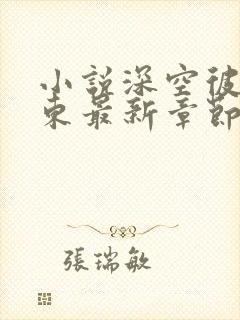 小說深空彼
東最新章節
張瑞敏